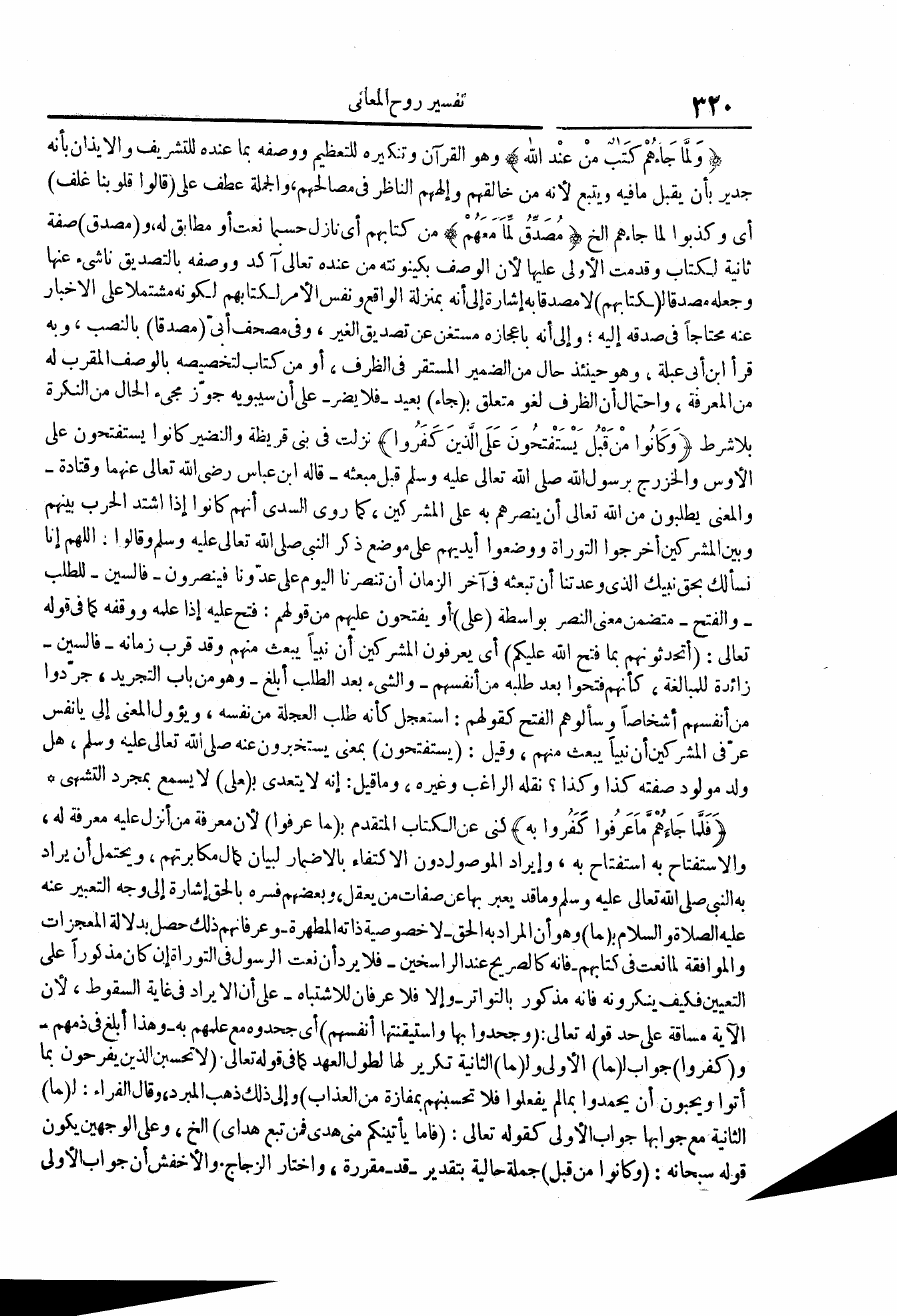 ٣٢٠
تفسير روح المعانى
﴿ وَلَمَّا جَاءَهُمْ كَتَٰبٌ مِنْ عِنْدِ اللَّهِ ﴾ وهو القرآن وتنكيره للتعظيم ووصفه بما عنده للتشريف والايذان بأنه
جدير بأن يقبل مافيه ويتبع لأنه من خالقهم وإلههم الناظر فى مصالحهم، والجملة عطف على (قالوا قلوبنا غلف)
أى وكذبوا لما جاءهم الخ ﴿ مُصَدِّقٌ لِّمَا مَعَهُمْ ﴾ من كتابهم أى نازل حسبما نعت أو مطابق له، و(مصدق) صفة
ثانية لكتاب وقدمت الأولى عليها لأن الوصف بكينونته من عنده تعالى آكد ووصفه بالتصديق ناشىء عنها
وجعله مصدقا لـ(كتابهم) لا مصدقا به إشارة إلى أنه بمنزلة الواقع ونفس الأمر لكتابهم لكونه مشتملا على الاخبار
عنه محتاجاً فى صدقه إليه ؛ وإلى أنه باعجازه مستغن عن تصديق الغير ، وفى مصحف أبىّ (مصدقا) بالنصب ، وبه
قرأ ابن أبى عبلة ، وهو حينئذ حال من الضمير المستقر فى الظرف ، أو من كتاب لتخصيصه بالوصف المقرب له
من المعرفة ، واحتمال أن الظرف لغو متعلق بـ(جاء) بعيد ـ فلا يضر ـ على أن سيبويه جوّز مجىء الحال من النكرة
بلا شرط ﴿ وَكَانُوا مِنْ قَبْلُ يَسْتَفْتِحُونَ عَلَى الَّذِينَ كَفَرُوا ﴾ نزلت فى بنى قريظة والنضير كانوا يستفتحون على
الأوس والخزرج برسول الله صلى الله تعالى عليه وسلم قبل مبعثه ـ قاله ابن عباس رضى الله تعالى عنهما وقتادة ـ
والمعنى يطلبون من الله تعالى أن ينصرهم به على المشركين ، كما روى السدى أنهم كانوا إذا اشتد الحرب بينهم
وبين المشركين أخرجوا التوراة ووضعوا أيديهم على موضع ذكر النبى صلى الله تعالى عليه وسلم وقالوا : اللهم إنا
نسألك بحق نبيك الذى وعدتنا أن تبعثه فى آخر الزمان أن تنصرنا اليوم على عدوّنا فينصرون ـ فالسين ـ للطلب
ـ والفتح ـ متضمن معنى النصر بواسطة (على) أو يفتحون عليهم من قولهم : فتح عليه إذا علمه ووقفه كما فى قوله
تعالى : (أتحدثونهم بما فتح الله عليكم) أى يعرفون المشركين أن نبياً يبعث منهم وقد قرب زمانه ـ فالسين ـ
زائدة للمبالغة ، كأنهم فتحوا بعد طلبه من أنفسهم ـ والشىء بعد الطلب أبلغ ـ وهو من باب التجريد ، جرّدوا
من أنفسهم أشخاصاً وسألوهم الفتح كقولهم : استعجل كأنه طلب العجلة من نفسه ، ويؤول المعنى إلى يا نفس
عرّفى المشركين أن نبياً يبعث منهم ، وقيل : (يستفتحون) بمعنى يستخبرون عنه صلى الله تعالى عليه وسلم ، هل
ولد مولود صفته كذا وكذا ؟ نقله الراغب وغيره ، وما قيل : إنه لا يتعدى بـ(على) لا يسمع بمجرد التشهى *
﴿ فَلَمَّا جَاءَهُمْ مَّا عَرَفُوا كَفَرُوا بِهِ ﴾ كنى عن الكتاب المتقدم بـ(ما عرفوا) لأن معرفة من أنزل عليه معرفة له ،
والاستفتاح به استفتاح به ، وإيراد الموصول دون الاكتفاء بالاضمار لبيان كمال مكابرتهم ، ويحتمل أن يراد
به النبى صلى الله تعالى عليه وسلم وما قد يعبر بها عن صفات من يعقل، وبعضهم فسره بالحق إشارة إلى وجه التعبير عنه
عليه الصلاة والسلام بـ(ما) وهو أن المراد به الحق ـ لا خصوصية ذاته المطهرة ـ وعرفانهم ذلك حصل بدلالة المعجزات
والموافقة لما نعت فى كتابهم ـ فانه كالصريح عند الراسخين ـ فلا يرد أن نعت الرسول فى التوراة إن كان مذكوراً على
التعيين فكيف ينكرونه فانه مذكور بالتواتر ـ وإلا فلا عرفان للاشتباه ـ على أن الايراد فى غاية السقوط ، لأن
الآية مساقة على حد قوله تعالى: (وجحدوا بها واستيقنتها أنفسهم) أى جحدوه مع علمهم به ـ وهذا أبلغ فى ذمهم ـ
و(كفروا) جواب لـ(ما) الأولى ولـ(ما) الثانية تكرير لها لطول العهد كما فى قوله تعالى : (لا تحسبن الذين يفرحون بما
أتوا ويحبون أن يحمدوا بما لم يفعلوا فلا تحسبنهم بمفازة من العذاب) وإلى ذلك ذهب المبرد، وقال الفراء : لـ(ما)
الثانية مع جوابها جواب الأولى كقوله تعالى : (فاما يأتينكم منى هدى فمن تبع هداى) الخ ، وعلى الوجهين يكون
قوله سبحانه : (وكانوا من قبل) جملة حالية بتقدير ـ قد ـ مقررة ، واختار الزجاج. والأخفش أن جواب الأولى